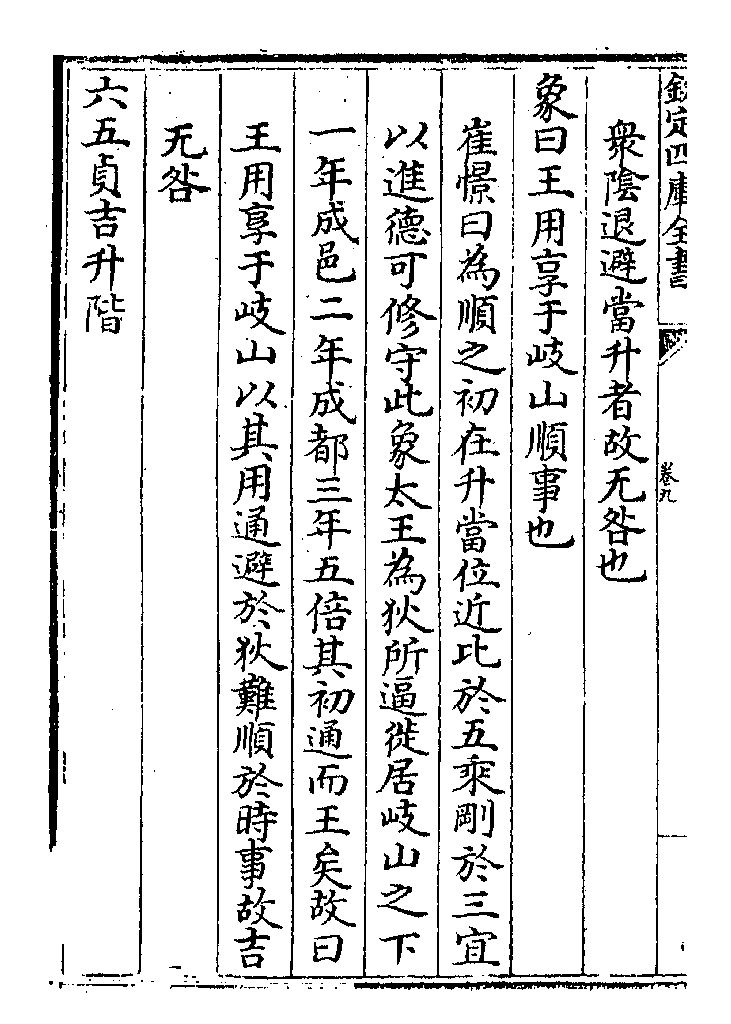 欽定四庫全書
卷九
衆陰退避當升者故无咎也
象曰王用享于岐山順事也
崔憬曰為順之初在升當位近比於五乘剛於三宜
以進德可修守此象太王為狄所逼徙居岐山之下
一年成邑二年成都三年五倍其初通而王矣故曰
王用享于岐山以其用通避於狄難順於時事故吉
无咎
六五貞吉升階